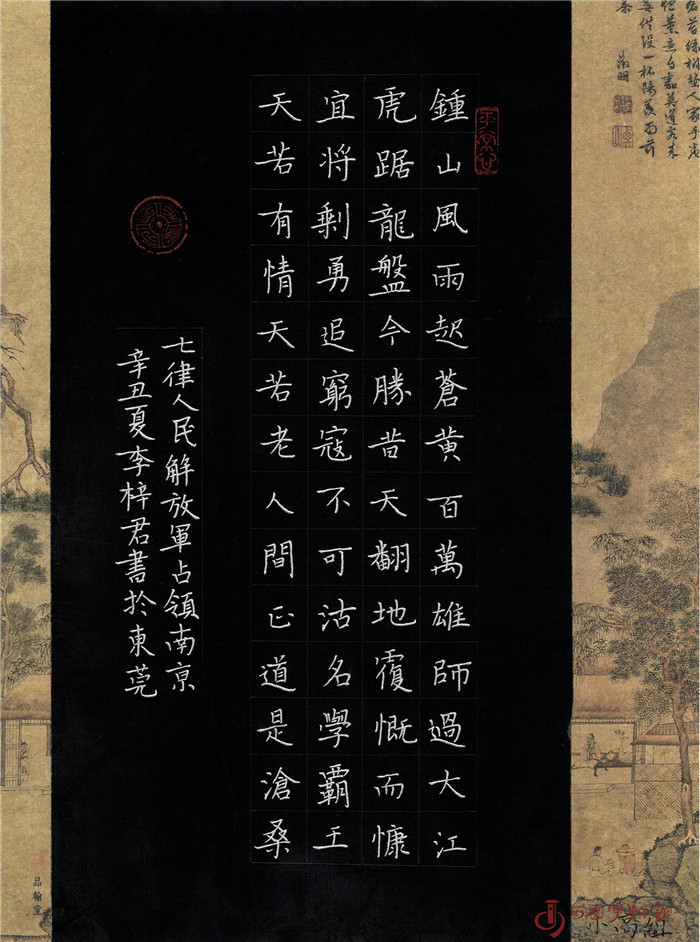 一杯陽羨雨前
茶
鍾山風雨起蒼黄百萬雄師過大江
虎踞龍盤今勝昔天翻地覆慨而慷
宜将剩勇追窮寇不可沽名學霸王
天若有情天若老人間正道是滄桑
七律人民解放軍占領南京
辛丑夏李梓君書於東莞
品翰堂
小高组